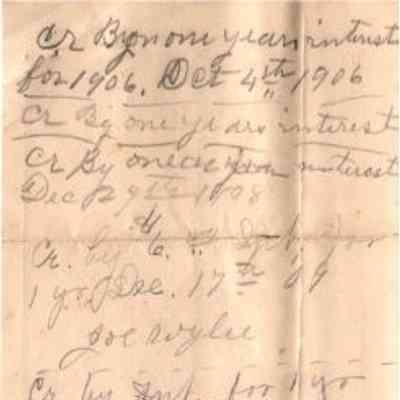 Cr By on one years interest
for 1906. Oct 4th 1906
Cr By one years interest
Cr By one year interest
Dec 29th 1908
Cr. by Int. for
1 yr. Dec. 17th 09
Joe Wylie
Cr by Int. for 1 yr